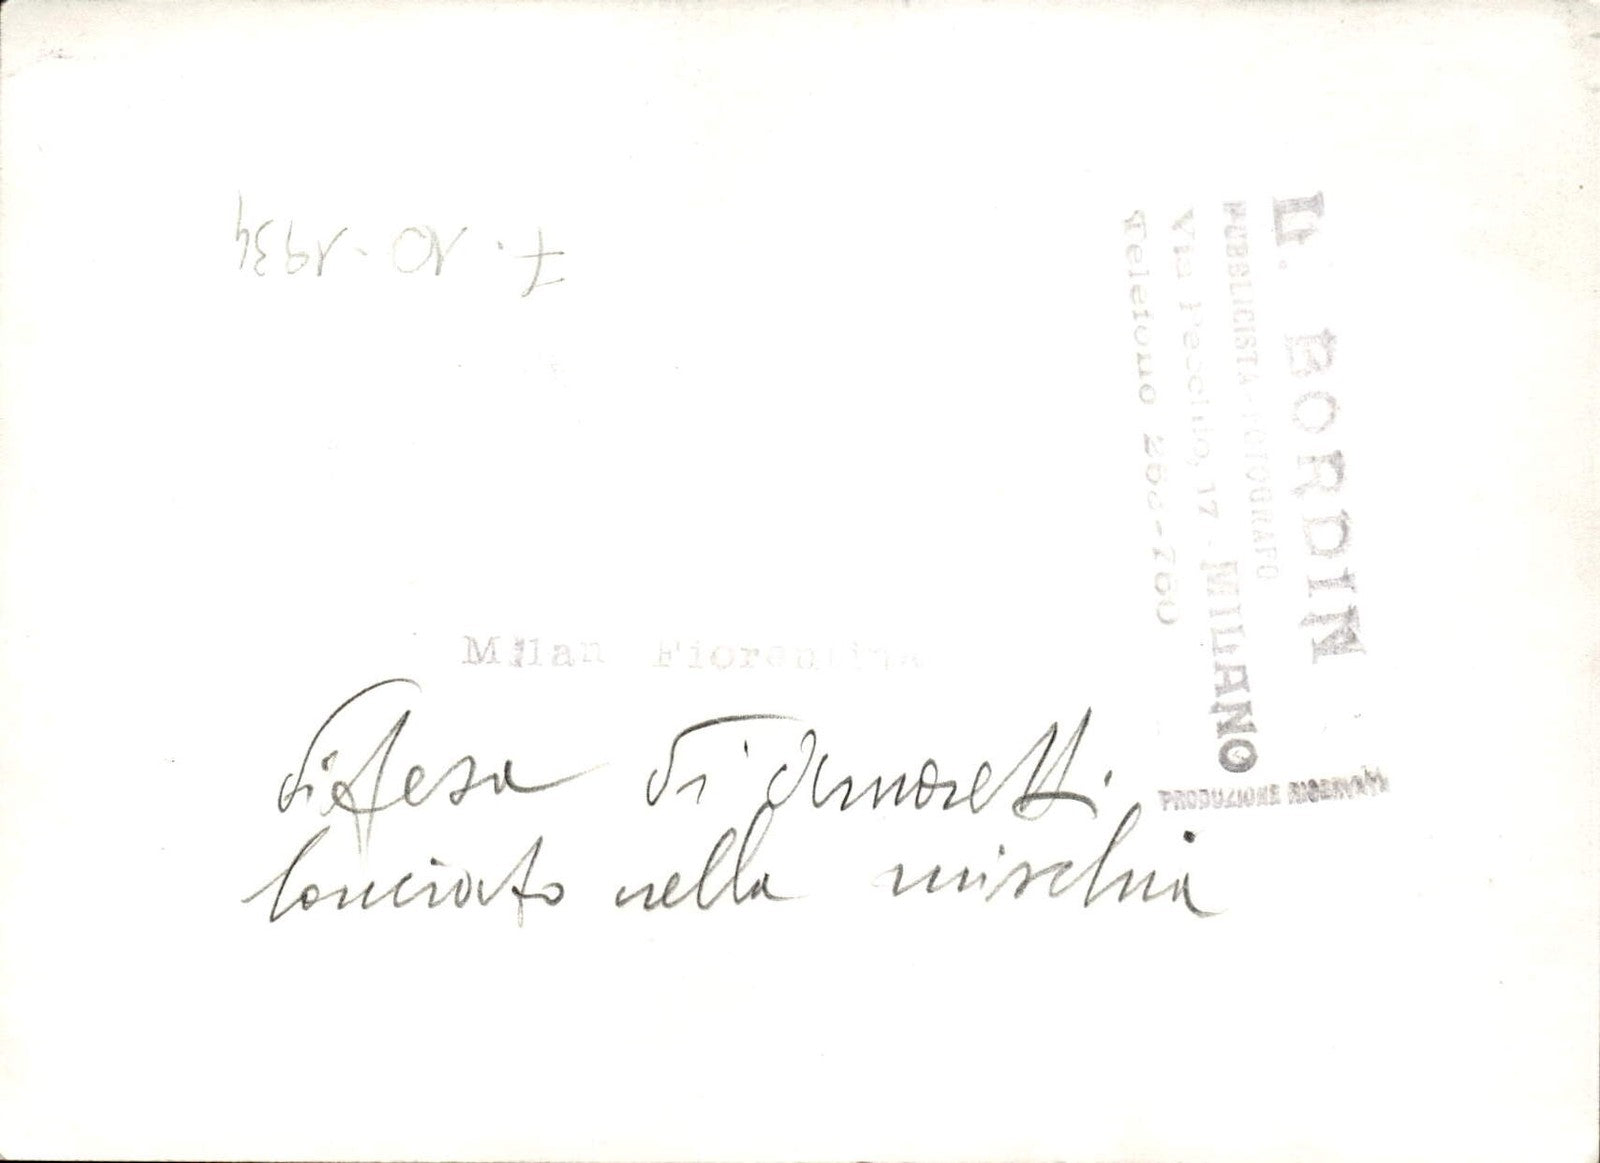 7.10-1934
L. BORDIN
PUBBLICISTA-FOTOGRAFO
Via Pecchio, 17 - MILANO
Telefono
PRODUZIONE RISERVATA
Milan Fiorentina
difesa di Amoretti
lanciato nella mischia